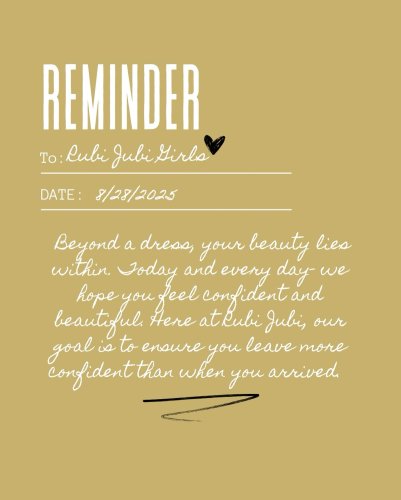 REMINDER
To: Rubi Jubi Girls
DATE: 8/28/2025
Beyond a dress, your beauty lies
within. Today and every day- we
hope you feel confident and
beautiful. Here at Rubi Jubi, our
goal is to ensure you leave more
confident than when you arrived.